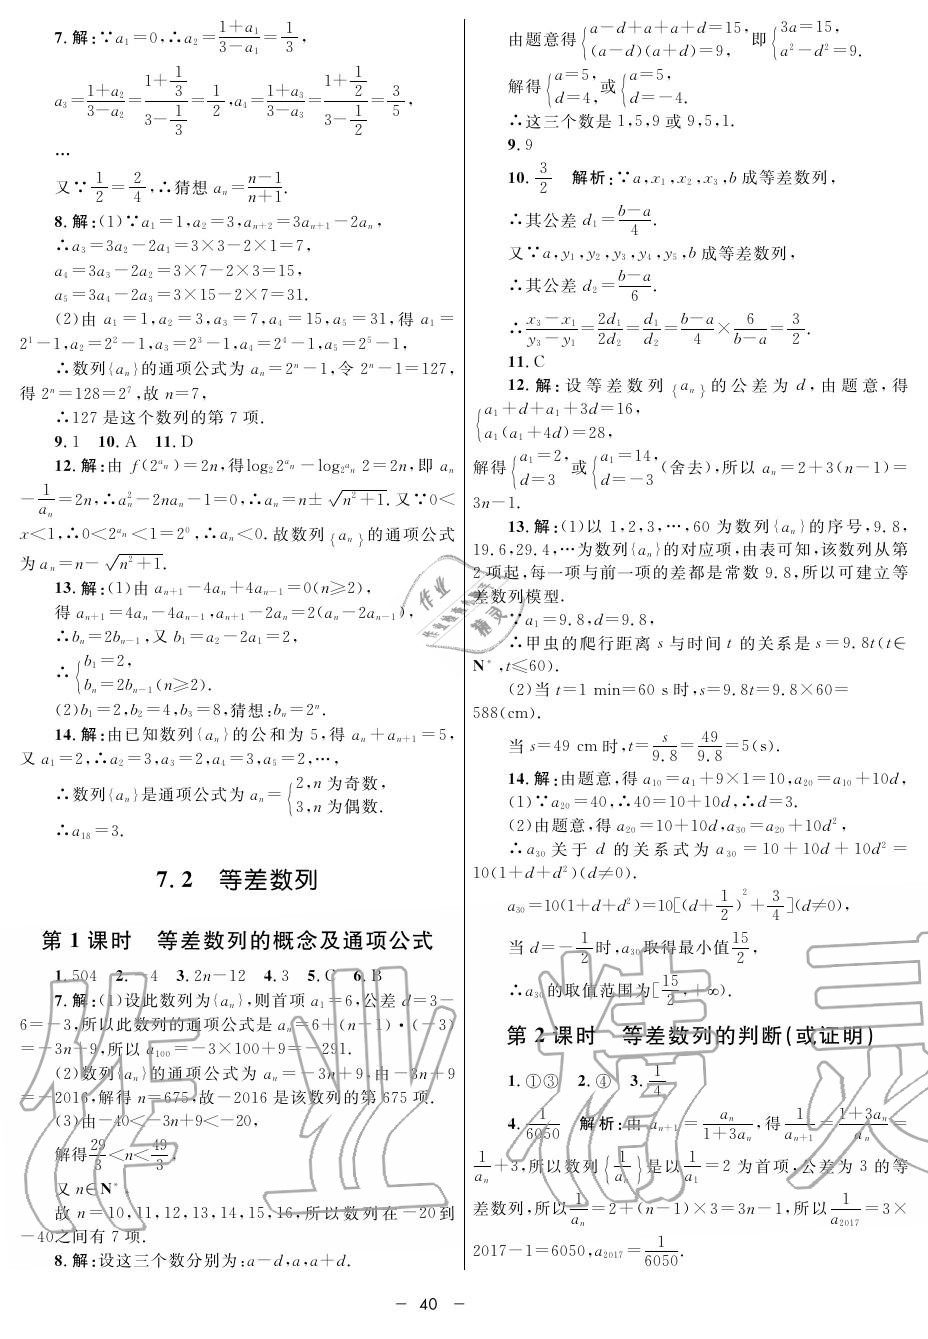 7.解:∵a₁=0,∴a₂=(1+a₁)/(3-a₁)=1/3,
a₃=(1+a₂)/(3-a₂)=(1+1/3)/(3-1/3)=1/2,a₄=(1+a₃)/(3-a₃)=(1+1/2)/(3-1/2)=3/5,
…
又∵1/2=2/4,∴猜想 aₙ=(n-1)/(n+1).
8.解:(1)∵a₁=1,a₂=3,aₙ₊₂=3aₙ₊₁-2aₙ,
∴a₃=3a₂-2a₁=3×3-2×1=7,
a₄=3a₃-2a₂=3×7-2×3=15,
a₅=3a₄-2a₃=3×15-2×7=31.
(2)由 a₁=1,a₂=3,a₃=7,a₄=15,a₅=31,得 a₁=
2¹-1,a₂=2²-1,a₃=2³-1,a₄=2⁴-1,a₅=2⁵-1,
∴数列{aₙ}的通项公式为 aₙ=2ⁿ-1,令 2ⁿ-1=127,
得 2ⁿ=128=2⁷,故 n=7,
∴127 是这个数列的第 7 项.
9.1 10.A 11.D
12.解:由 f(2^{aₙ})=2n,得log₂2^{aₙ}-log_{2^{aₙ}}2=2n,即 aₙ
-1/aₙ=2n,∴aₙ²-2naₙ-1=0,∴aₙ=n±√(n²+1).又∵0<
x<1,∴0<2^{aₙ}<1=2⁰,∴aₙ<0.故数列{aₙ}的通项公式
为 aₙ=n-√(n²+1).
13.解:(1)由 aₙ₊₁-4aₙ+4aₙ₋₁=0(n≥2),
得 aₙ₊₁=4aₙ-4aₙ₋₁,aₙ₊₁-2aₙ=2(aₙ-2aₙ₋₁),
∴bₙ=2bₙ₋₁,又 b₁=a₂-2a₁=2,
∴{b₁=2,
bₙ=2bₙ₋₁(n≥2).
(2)b₁=2,b₂=4,b₃=8,猜想:bₙ=2ⁿ.
14.解:由已知数列{aₙ}的公和为 5,得 aₙ+aₙ₊₁=5,
又 a₁=2,∴a₂=3,a₃=2,a₄=3,a₅=2,…,
∴数列{aₙ}是通项公式为 aₙ={2,n 为奇数,
3,n 为偶数.
∴a₁₈=3.
7.2 等差数列
第 1 课时 等差数列的概念及通项公式
1.504 2.-4 3.2n-12 4.3 5.C 6.B
7.解:(1)设此数列为{aₙ},则首项 a₁=6,公差 d=3-
6=-3,所以此数列的通项公式是 aₙ=6+(n-1)·(-3)
=-3n+9,所以 a₁₀₀=-3×100+9=-291.
(2)数列{aₙ}的通项公式为 aₙ=-3n+9.由-3n+9
=-2016,解得 n=675,故-2016 是该数列的第 675 项.
(3)由-40<-3n+9<-20,
解得29/3<n<49/3,
又 n∈N*,
故 n=10,11,12,13,14,15,16,所以数列在-20到
-40之间有 7 项.
8.解:设这三个数分别为:a-d,a,a+d.
由题意得{a-d+a+a+d=15, 即{3a=15,
(a-d)(a+d)=9, a²-d²=9.
解得{a=5, 或{a=5,
d=4, d=-4.
∴这三个数是 1,5,9 或 9,5,1.
9.9
10.3/2 解析:∵a,x₁,x₂,x₃,b 成等差数列,
∴其公差 d₁=(b-a)/4.
又∵a,y₁,y₂,y₃,y₄,y₅,b 成等差数列,
∴其公差 d₂=(b-a)/6.
∴(x₃-x₁)/(y₃-y₁)=2d₁/2d₂=d₁/d₂=(b-a)/4×6/(b-a)=3/2.
11.C
12.解:设等差数列{aₙ}的公差为 d,由题意,得
{a₁+d+a₁+3d=16,
a₁(a₁+4d)=28,
解得{a₁=2, 或{a₁=14, (舍去),所以 aₙ=2+3(n-1)=
d=3 d=-3
3n-1.
13.解:(1)以 1,2,3,…,60 为数列{aₙ}的序号,9.8,
19.6,29.4,…为数列{aₙ}的对应项,由表可知,该数列从第
2 项起,每一项与前一项的差都是常数 9.8,所以可建立等
差数列模型.
∵a₁=9.8,d=9.8,
∴甲虫的爬行距离 s 与时间 t 的关系是 s=9.8t(t∈
N*,t≤60).
(2)当 t=1 min=60 s 时,s=9.8t=9.8×60=
588(cm).
当 s=49 cm 时,t=s/9.8=49/9.8=5(s).
14.解:由题意,得 a₁₀=a₁+9×1=10,a₂₀=a₁₀+10d,
(1)∵a₂₀=40,∴40=10+10d,∴d=3.
(2)由题意,得 a₂₀=10+10d,a₃₀=a₂₀+10d²,
∴a₃₀ 关于 d 的关系式为 a₃₀=10+10d+10d²=
10(1+d+d²)(d≠0).
a₃₀=10(1+d+d²)=10[(d+1/2)²+3/4](d≠0),
当 d=-1/2时,a₃₀取得最小值15/2,
∴a₃₀的取值范围为[15/2,+∞).
第 2 课时 等差数列的判断(或证明)
1.①③ 2.④ 3.1/4
4.1/6050 解析:由 aₙ₊₁=aₙ/(1+3aₙ),得1/aₙ₊₁=(1+3aₙ)/aₙ=
1/aₙ+3,所以数列{1/aₙ}是以1/a₁=2 为首项,公差为 3 的等
差数列,所以1/aₙ=2+(n-1)×3=3n-1,所以1/a₂₀₁₇=3×
2017-1=6050,a₂₀₁₇=1/6050.
- 40 -
作业精灵